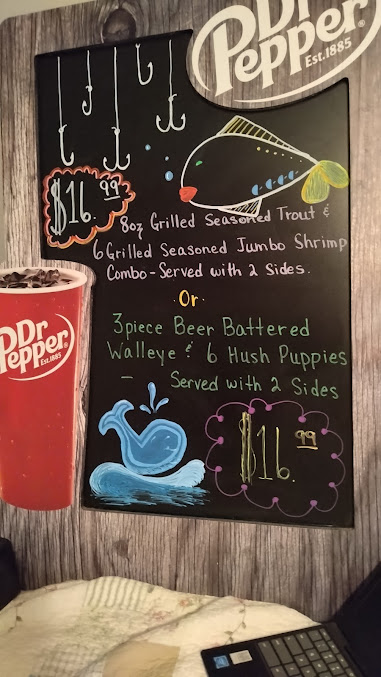 Dr
Pepper
Est.1885
$16.99
8oz Grilled Seasoned Trout &
6 Grilled Seasoned Jumbo Shrimp
Combo - Served with 2 Sides.
Or
3piece Beer Battered
Walleye & 6 Hush Puppies
– Served with 2 Sides
Dr
Pepper
Est.1885
$16.99